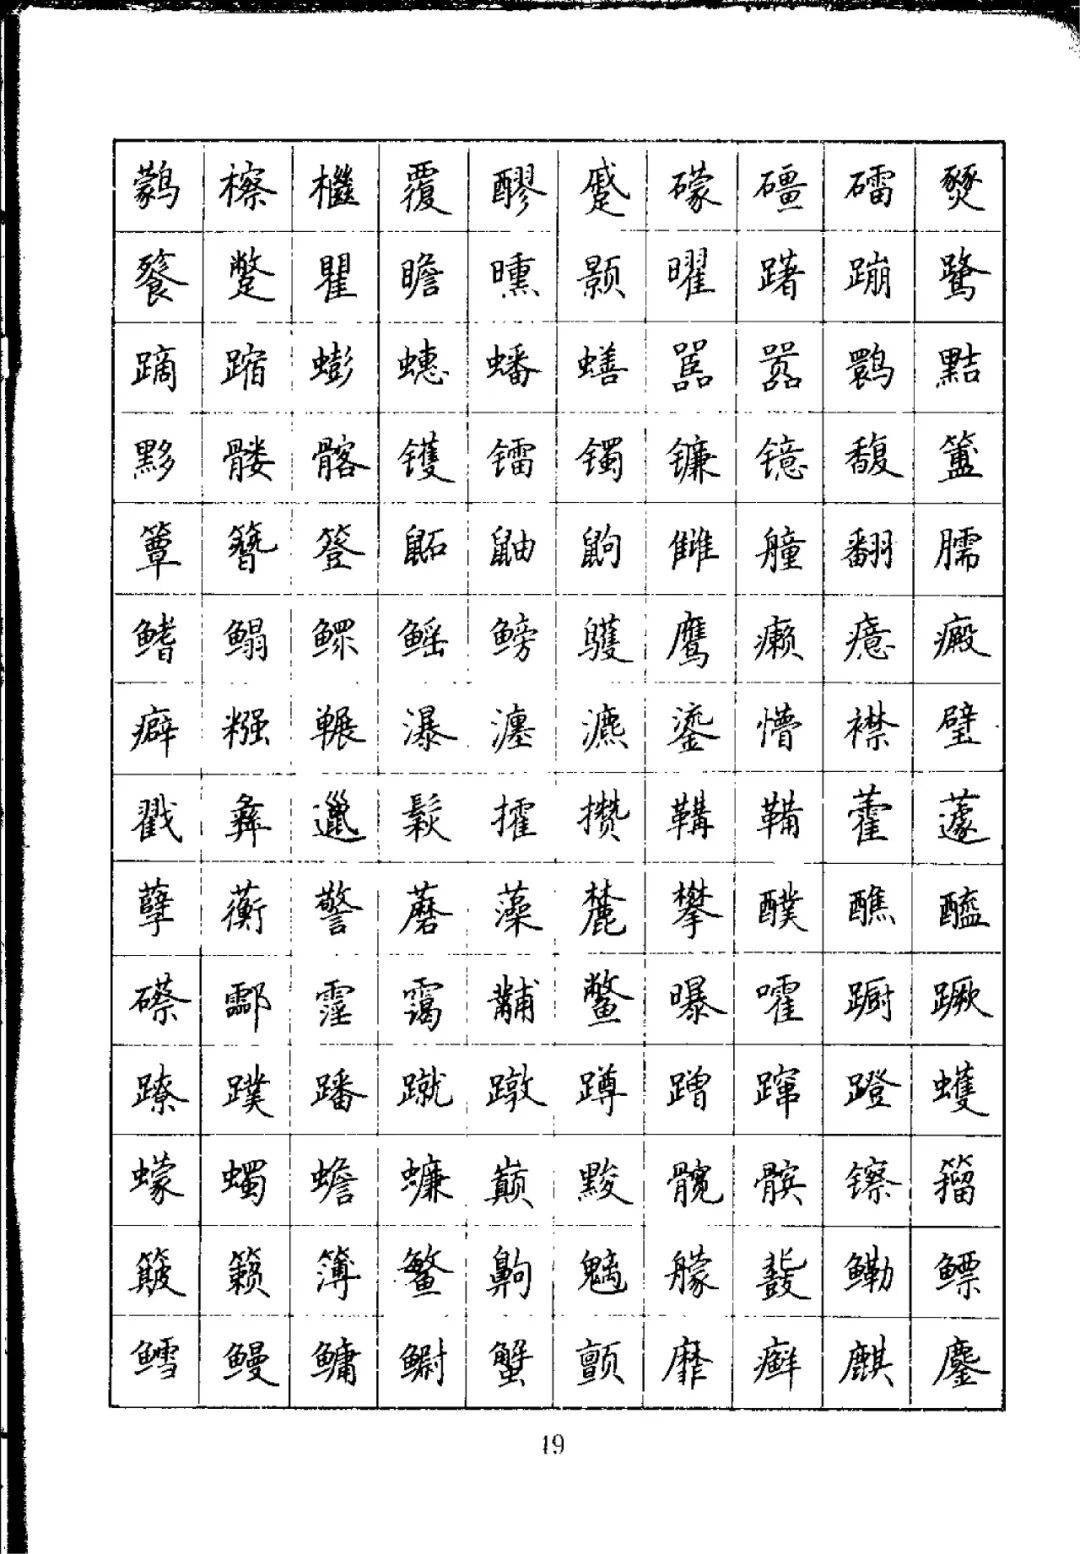 鹲 檫 檵 覆 醪 蹙 礞 礓 礌 燹
餮 蹩 瞿 瞻 曛 颢 曜 躇 蹦 鹭
蹢 蹜 蟛 蟪 蟠 蟮 嚚 嚣 鹮 黠
黟 髅 髂 镬 镭 镯 镰 镱 馥 簠
簟 簪 簦 鼫 鼬 鼩 雠 艟 翻 臑
鳍 鳎 鳏 鳐 鳑 鹱 鹰 癞 癔 癜
癖 糨 冁 瀑 瀍 瀌 鎏 懵 襟 璧
戳 彝 邋 鬏 攉 攒 鞲 鞴 藿 蘧
孽 蘅 警 蘑 藻 麓 攀 醭 醮 醯
礤 酃 霪 霭 黼 鳖 曝 嚯 蹰 蹶
蹽 蹼 蹯 蹴 蹾 蹲 蹭 蹿 蹬 蠖
蠓 蠋 蟾 蠊 巅 黢 髋 髌 镲 籀
簸 籁 簿 鳘 齁 魑 艨 鼗 鳓 鳔
鳕 鳗 鳙 鳚 蟹 颤 靡 癣 麒 鏖
19